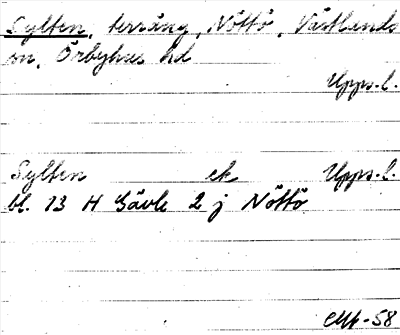 Sylten, terräng, Nöttö, Västlands
sn, Örbyhus hd
Upps.l.
Sylten ek Upps.l.
bl. 13 H Gävle 2 j Nöttö
-58